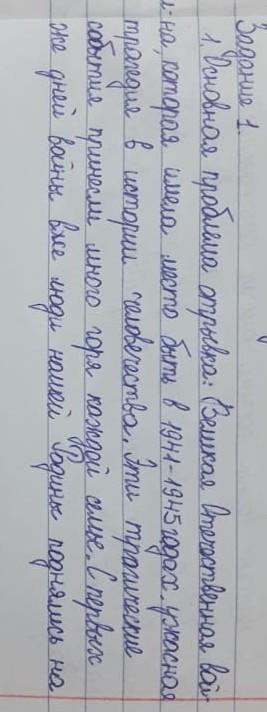 Задание 1.
1. Основная проблема отрывка: Великая Отечественная вой-
на, которая имела место быть в 1941-1945 годах, ужасная
трагедия в истории человечества. Эти трагические
события принесли много горя каждой семье. С первых
же дней войны вже люди нашей Родины поднялись на